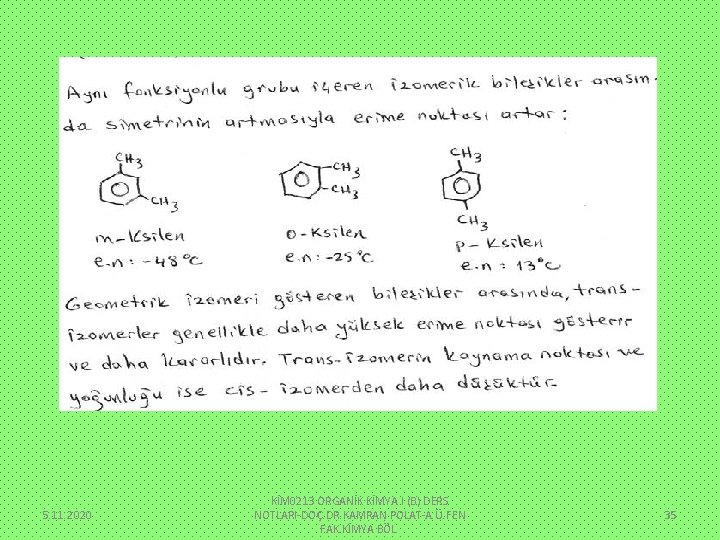 Aynı fonksiyonlu grubu içeren izomerik bileşikler arasın-
da simetrinin artmasıyla erime noktası artar:
CH3 CH3
m-Ksilen
e.n: -48°C
CH3 CH3
o-Ksilen
e.n: -25°C
CH3 CH3
p-Ksilen
e.n: 13°C
Geometrik izomeri gösteren bileşikler arasında, trans-
izomerler genellikle daha yüksek erime noktası gösterir
ve daha kararlıdır. Trans-izomerin kaynama noktası ve
yoğunluğu ise cis-izomerden daha düşüktür.
5.11.2020
KİM0213 ORGANİK KİMYA I (B) DERS
NOTLARI-DOÇ.DR.KAMRAN POLAT-A.Ü.FEN
FAK.KİMYA BÖL
35